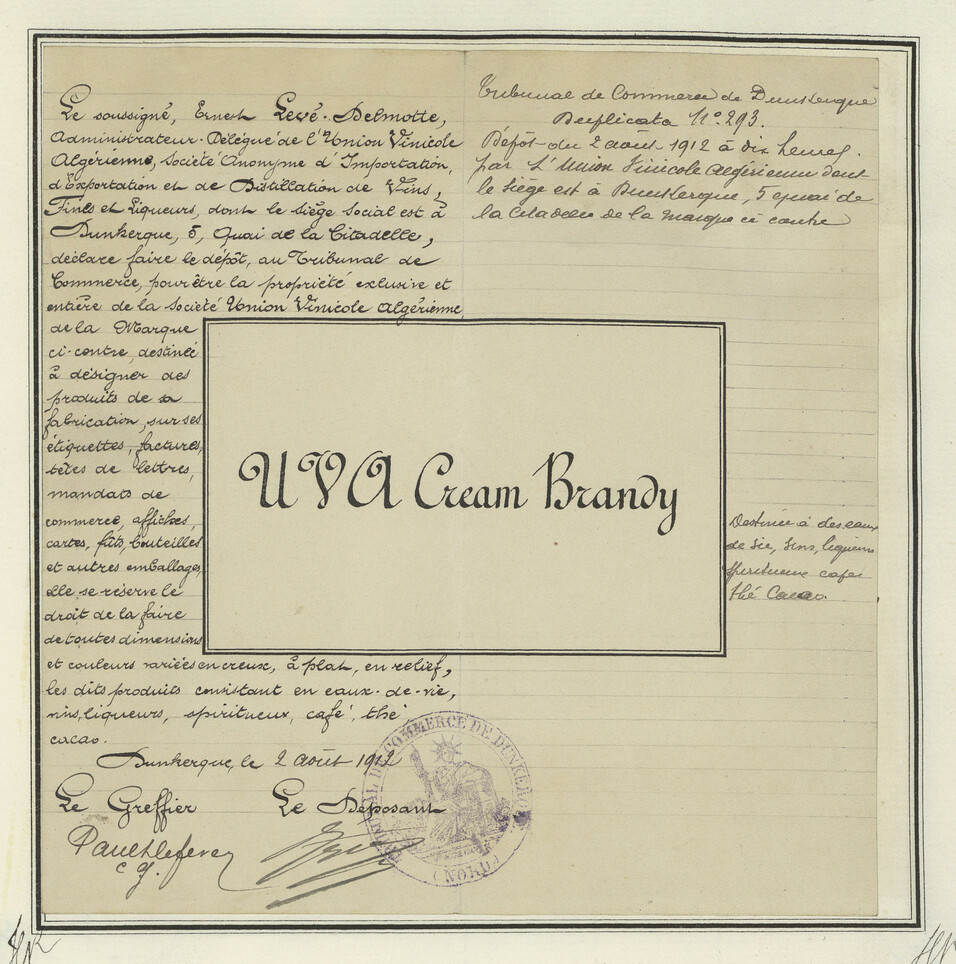 Le soussigné, Ernest Levé-Delmotte,
Administrateur-Délégué de l'Union Vinicole
Algérienne, Société Anonyme d'Importation,
d'Exportation et de Distillation de Vins,
Fines et Liqueurs, dont le siège social est à
Dunkerque, 5, Quai de la Citadelle,
déclare faire le dépôt, au Tribunal de
Commerce, pour être la propriété exclusive et
entière de la Société Union Vinicole Algérienne,
de la Marque
ci-contre, destinée
à désigner des
produits de sa
fabrication, sur ses
étiquettes, factures,
têtes de lettres,
mandats de
commerce, affiches,
cartes, fûts, bouteilles
et autres emballages,
elle se réserve le
droit de la faire
de toutes dimensions
et couleurs variées en creux, à plat, en relief,
les dits produits consistant en eaux-de-vie,
vins, liqueurs, spiritueux, café, thé
cacao.
Dunkerque, le 2 août 1912
Le Greffier Le Déposant
Tribunal de Commerce de Dunkerque
Duplicata N° 293.
Dépôt du 2 août 1912 à dix heures.
par L'Union Vinicole algérienne dont
le siège est à Dunkerque, 5 quai de
la Citadelle de la marque ci contre
UVA Cream Brandy
Destinée à des eaux
de vie, vins, liqueurs
spiritueux café
thé Cacao.
TRIBUNAL DE COMMERCE DE DUNKERQUE
(NORD)